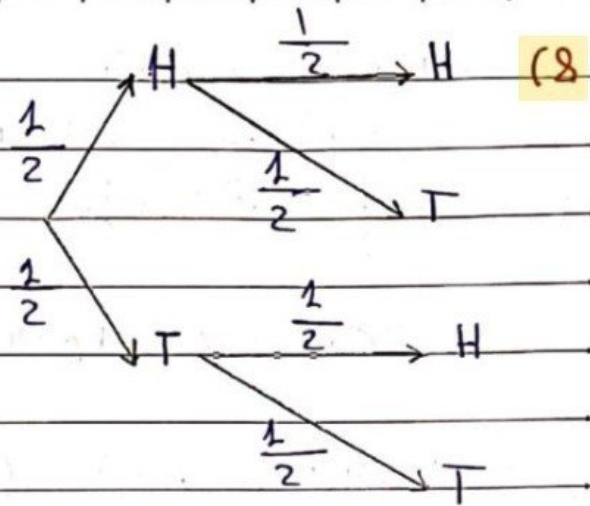 1/2
H
1/2
H
(8
1/2
T
1/2
T
1/2
H
1/2
T